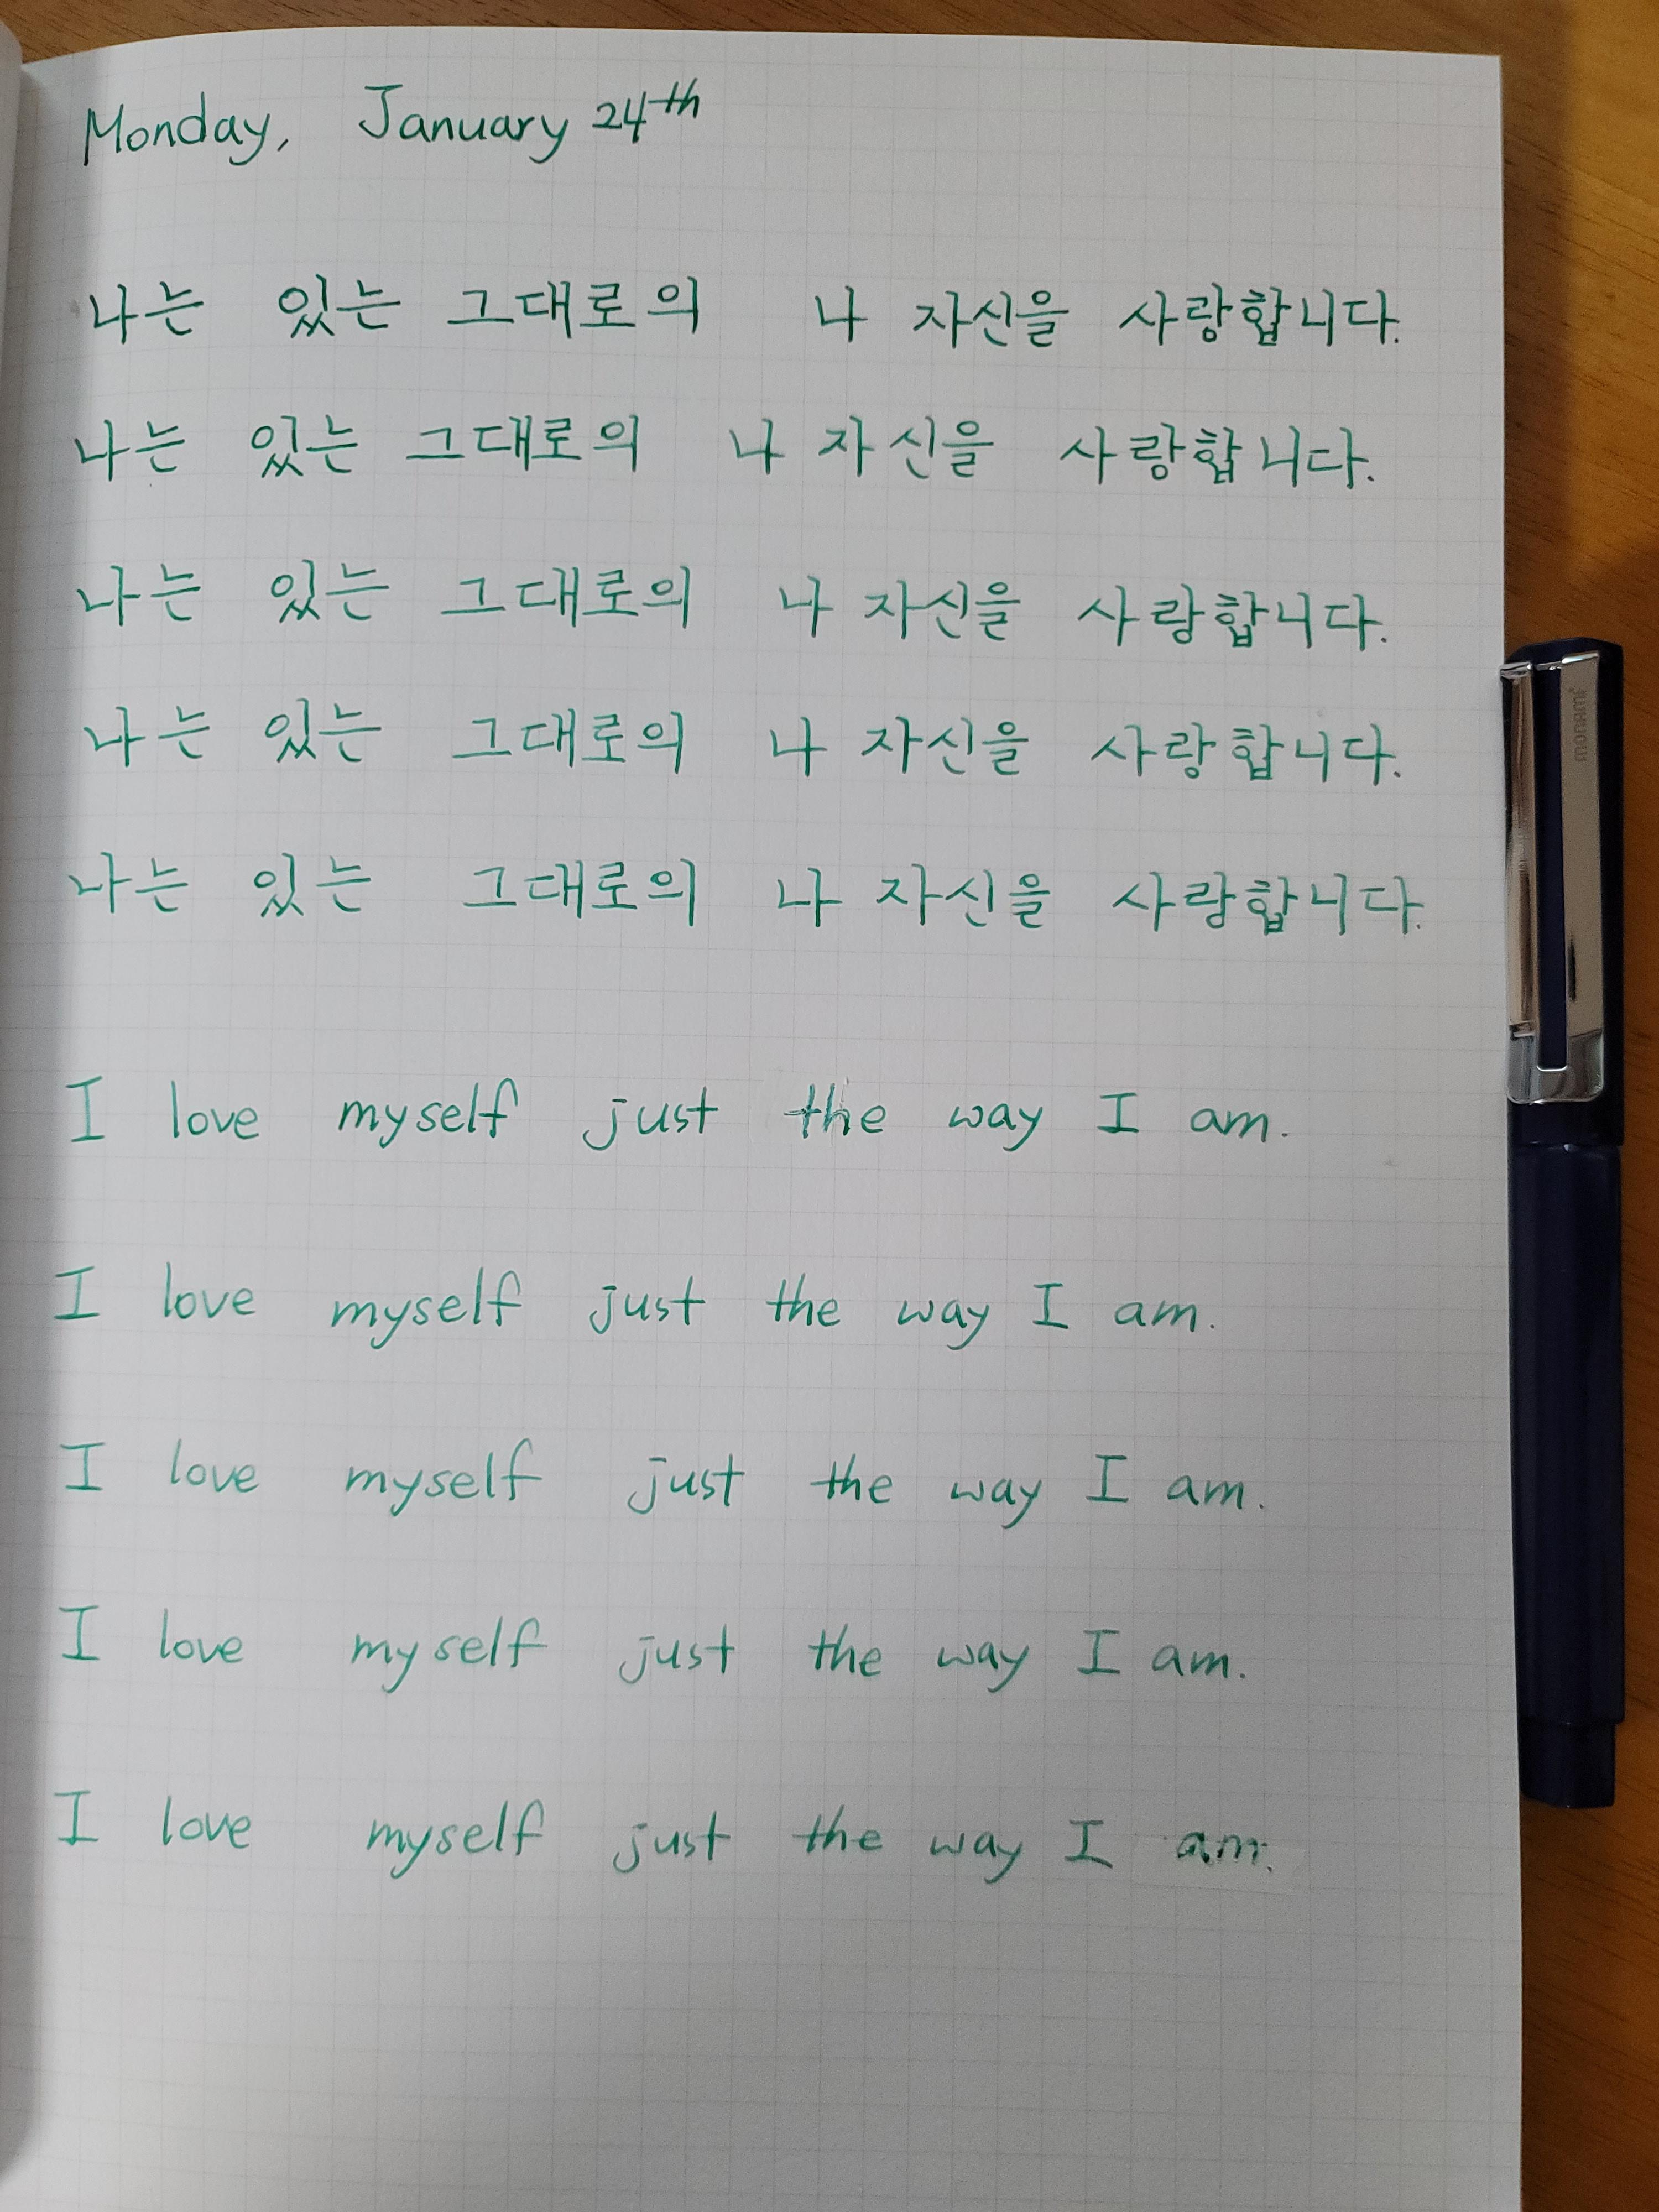 Monday, January 24th
나는 있는 그대로의 나 자신을 사랑합니다.
나는 있는 그대로의 나 자신을 사랑합니다.
나는 있는 그대로의 나 자신을 사랑합니다.
나는 있는 그대로의 나 자신을 사랑합니다.
나는 있는 그대로의 나 자신을 사랑합니다.
I love myself just the way I am.
I love myself just the way I am.
I love myself just the way I am.
I love myself just the way I am.
I love myself just the way I am.
monami